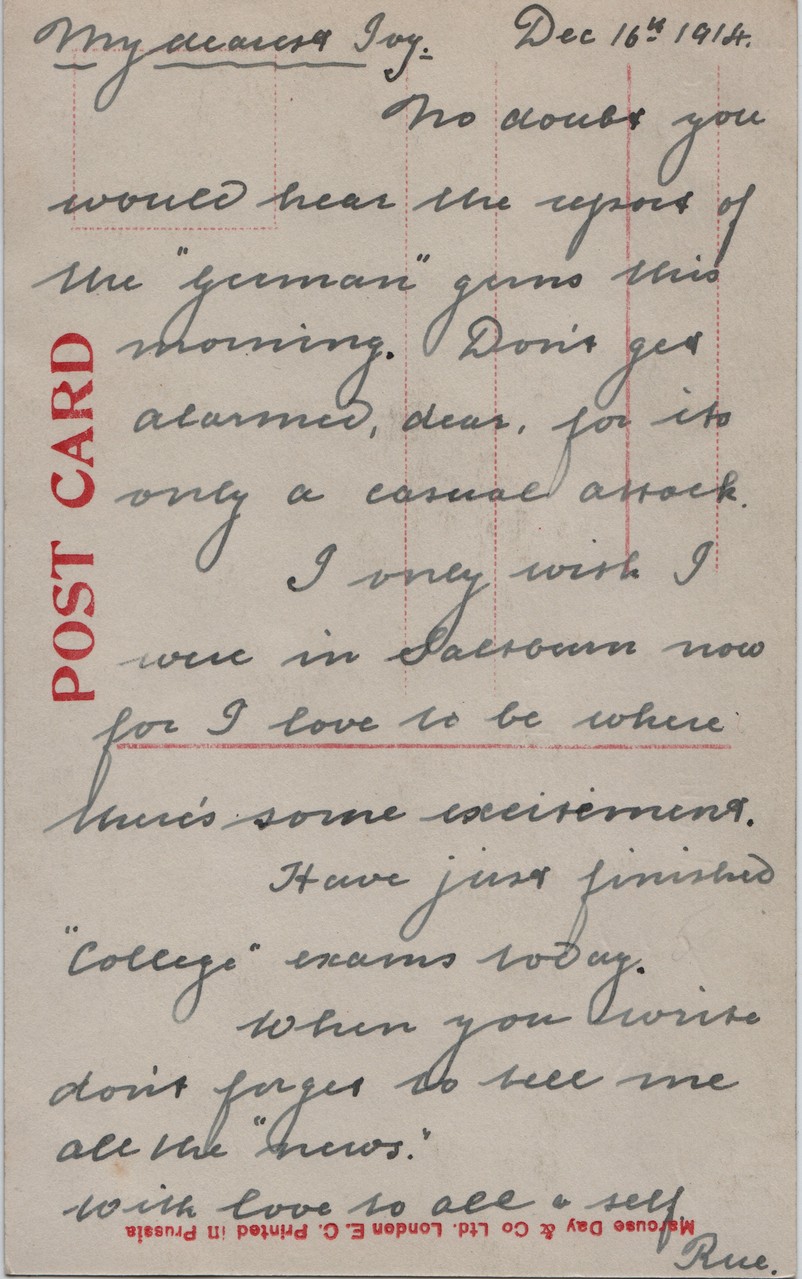 My dearest Ivy. Dec 16th 1914.
No doubt you
would hear the report of
the "German" guns this
morning. Don't get
alarmed, dear, for its
only a casual attack.
I only wish I
were in Saltburn now
for I love to be where
there's some excitement.
Have just finished
"College" exams today.
When you write
don't forget to tell me
all the "news."
With love to all & self
Rue.
POST CARD
Marcuse Day & Co Ltd. London E. C. Printed in Prussia